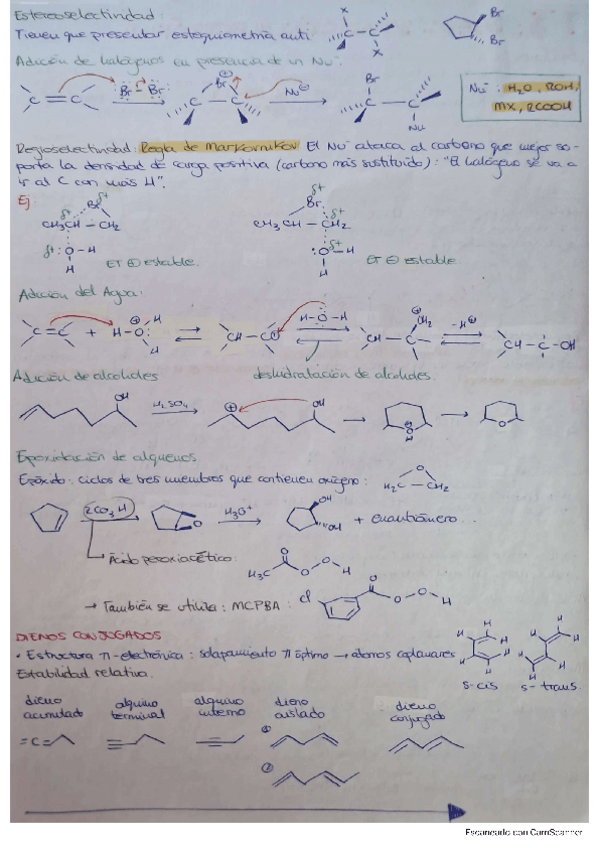 Estereoselectividad:
Tienen que presentar estequiometría anti
Adición de halógenos en presencia de un Nu⁻:
Nu⁻: H₂O, ROH,
MX, RCOOH
Regioselectividad: Regla de Markovnikov El Nu⁻ ataca al carbono que mejor so-
porta la densidad de carga positiva (carbono más sustituido): "El halógeno se va a
ir al C con más H".
Ej
δ+ Br δ+
CH₃CH — CH₂
δ+ O — H
H
ET ⊖ estable.
Br δ+
CH₃CH — CH₂
δ+
O — H
H
ET ⊖ estable.
Adición del Agua:
C=C + H-O-H ⇌ CH — C ⇌ CH — C — -H⊕ ⇌ CH — C — OH
Adición de alcoholes
deshidratación de alcoholes.
OH H₂SO₄ OH
Epoxidación de alquenos
Epóxido: ciclos de tres miembros que contienen oxígeno: H₂C — CH₂
RCO₃H H₃O⁺ OH OH + enantiómero...
Ácido peroxiacético: H₃C O O O H
→ También se utiliza: MCPBA: Cl O O O H
DIENOS CONJUGADOS
• Estructura π-electrónica: solapamiento π óptimo → átomos coplanares
s-cis s-trans
Estabilidad relativa.
dieno acumulado
alquino terminal
alquino interno
dieno aislado
dieno conjugado
=C=
①
②
Escaneado con CamScanner